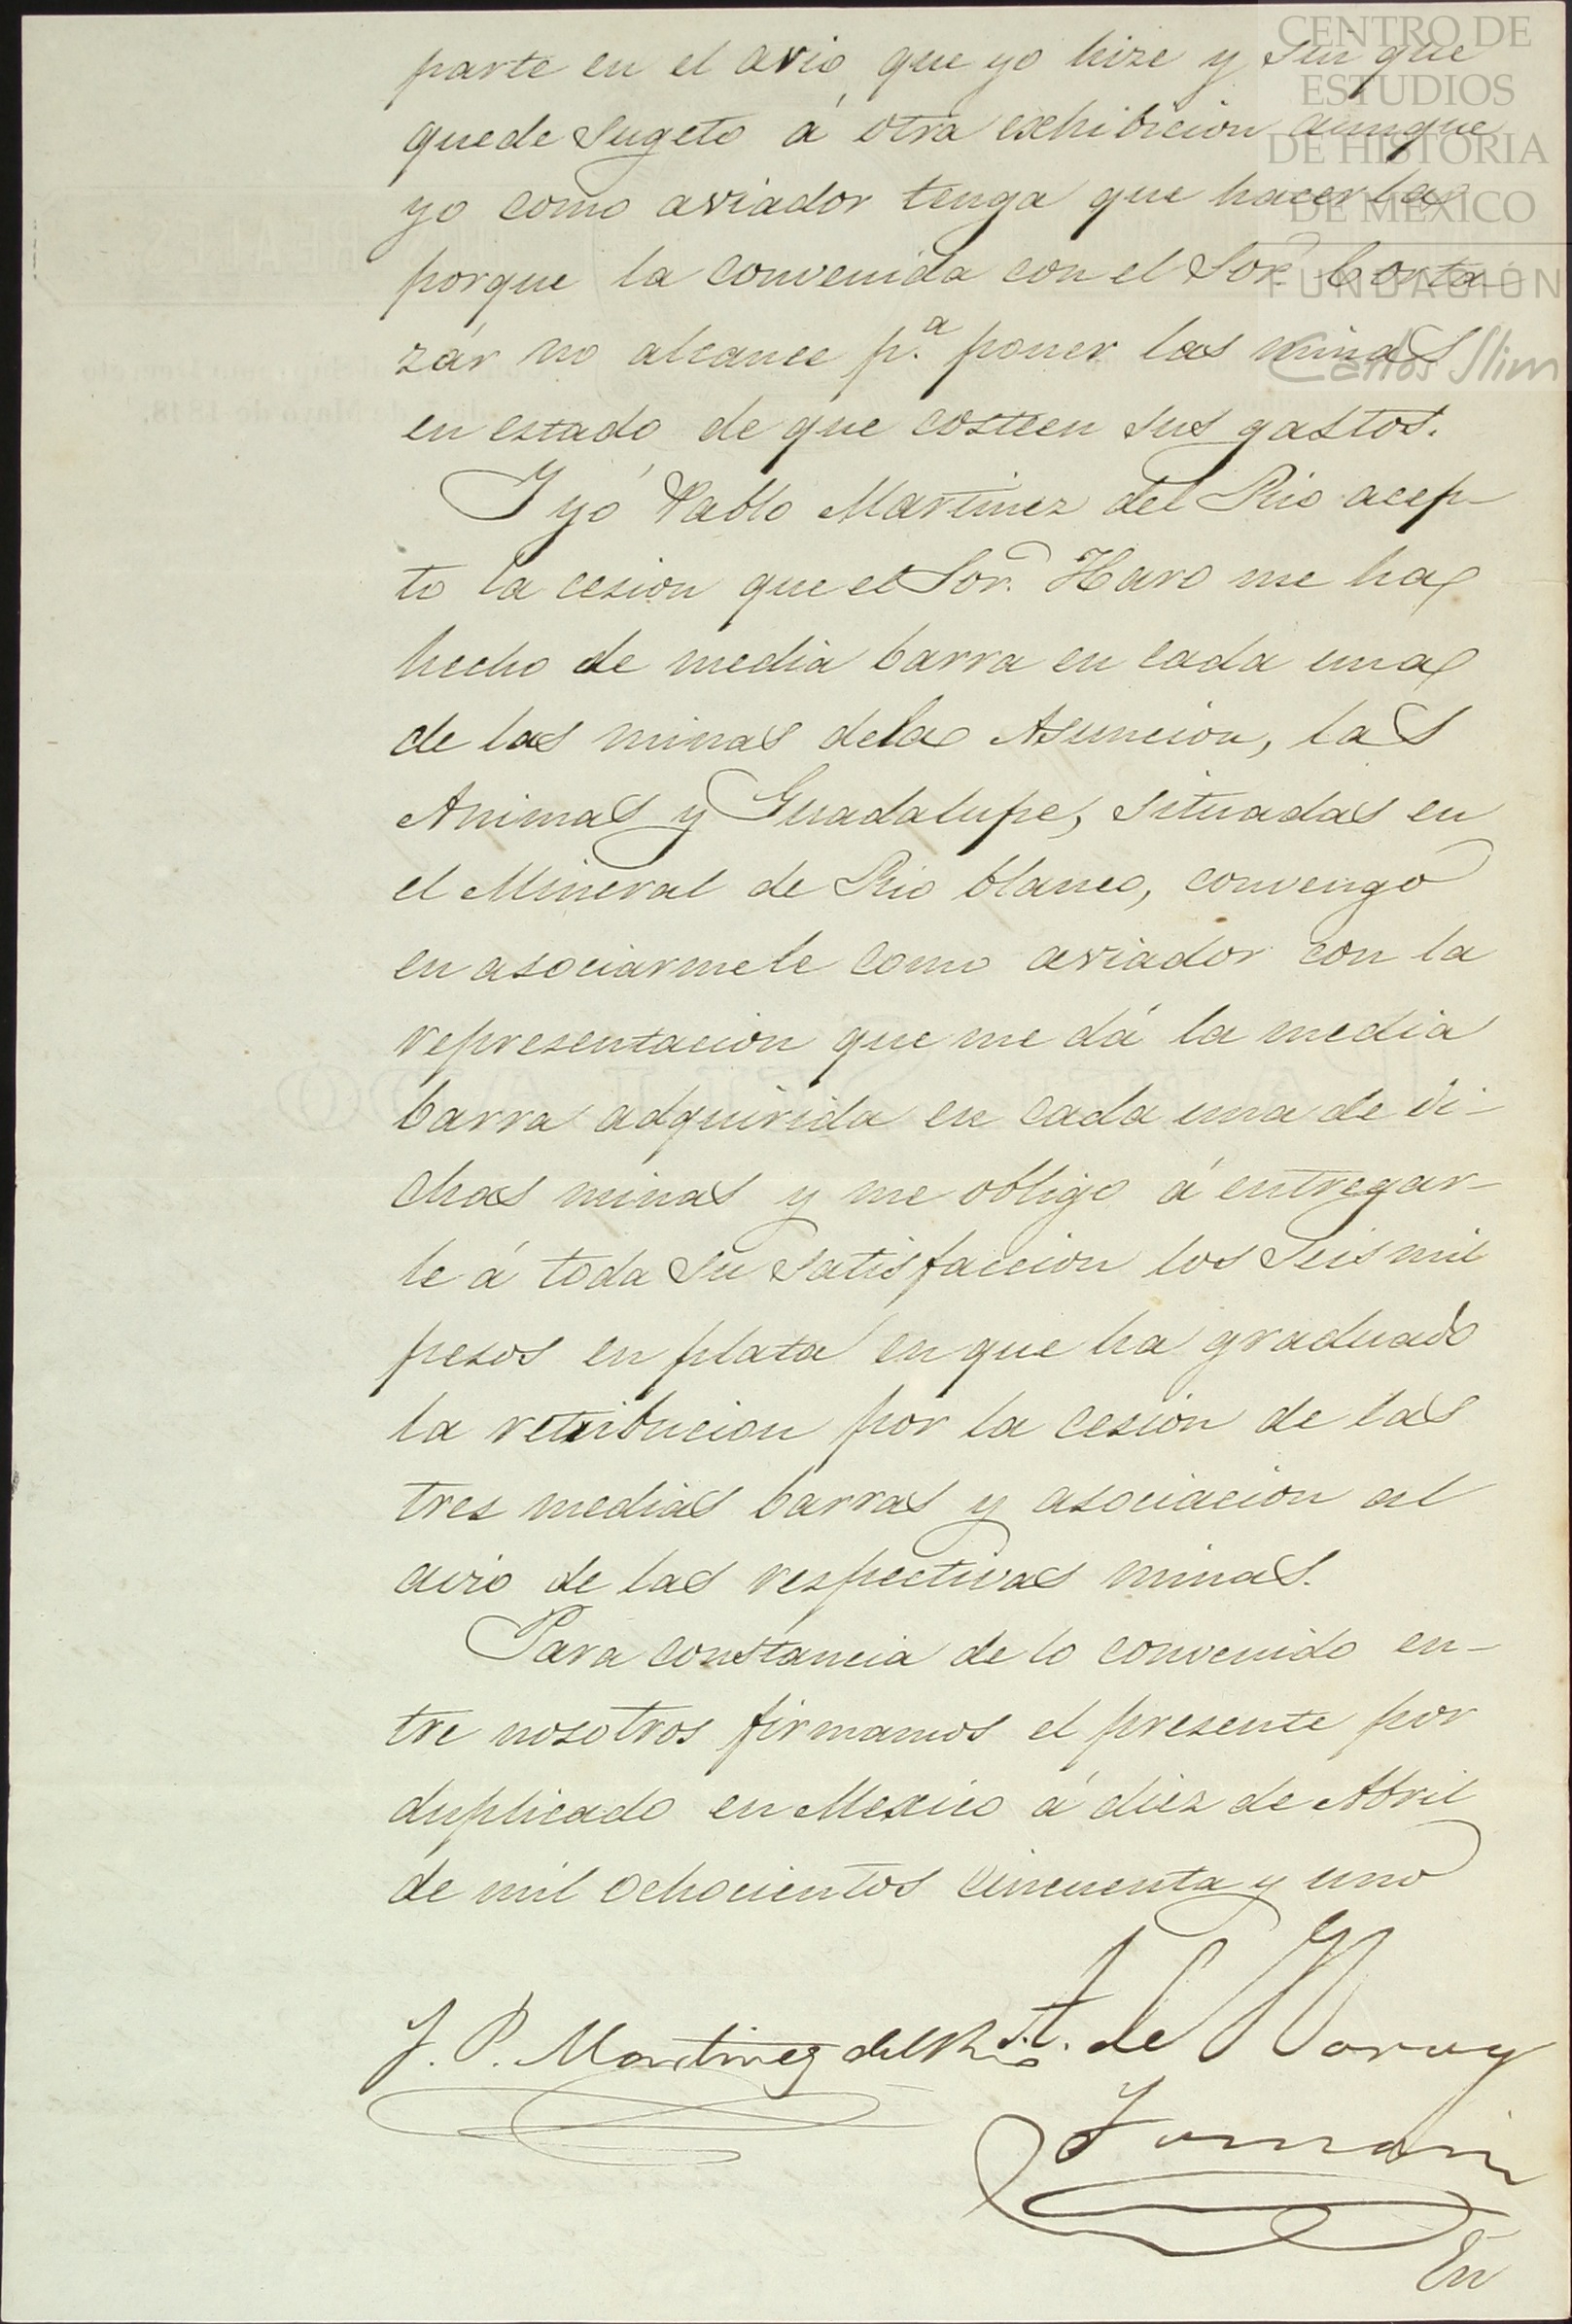 CENTRO DE
ESTUDIOS
DE HISTORIA
DE MÉXICO
FUNDACIÓN
Carlos Slim
parte en el avio, que yo hize y sin que
quede sugeto á otra exhibicion aunque
yo como aviador tenga que hacerla
porque la convenida con el Sor. Corta-
zár no alcance p.ª poner las minas
en estado de que costeen sus gastos.
Y yó Pablo Martinez del Rio acep-
to la cesion que el Sor. Haro me ha
hecho de media barra en cada una
de las minas dela Asuncion, las
Animas y Guadalupe, situadas en
el Mineral de Rio blanco, convengo
en asociarmele como aviador con la
representacion que me dá la media
barra adquirida en cada una de di-
chas minas y me obligo á entregar-
le á toda su satisfaccion los seis mil
pesos en plata en que ha graduado
la retribucion por la cesion de las
tres medias barras y asociacion al
avio de las respectivas minas.
Para constancia de lo convenido en-
tre nosotros firmamos el presente por
duplicado en Mexico á diez de Abril
de mil ochocientos cincuenta y uno
J. P. Martinez del Rio
A. de Haro y
Tamariz
En